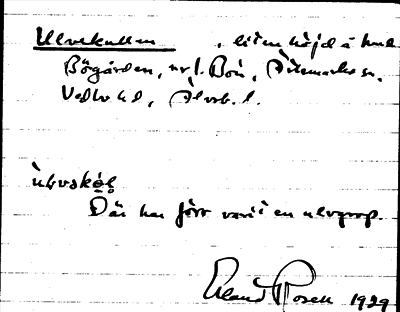 Ulvekullen , liten höjd å hmd
Bögården, nr 1. Bön, Ödemarks sn.
Vedbo hd, Älvsb. l.
Där har förr varit en ulvgrop.
Erland Rosell 1929